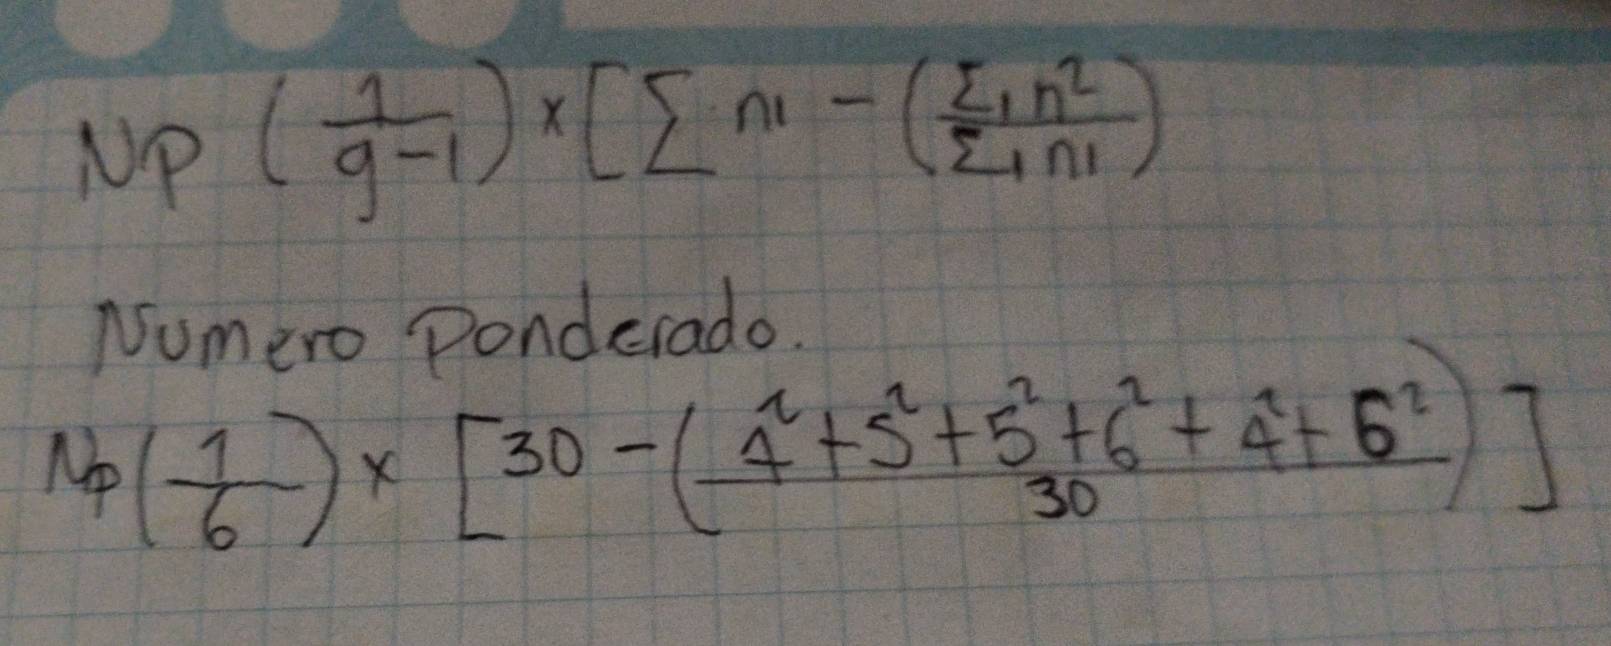 Np (1/g-1) x [Σ n1 - (Σ1 n²/Σ1 n1)
Numero Ponderado.
Np (1/6) x [30 - (4²+5²+5²+6²+4²+6²/30)]